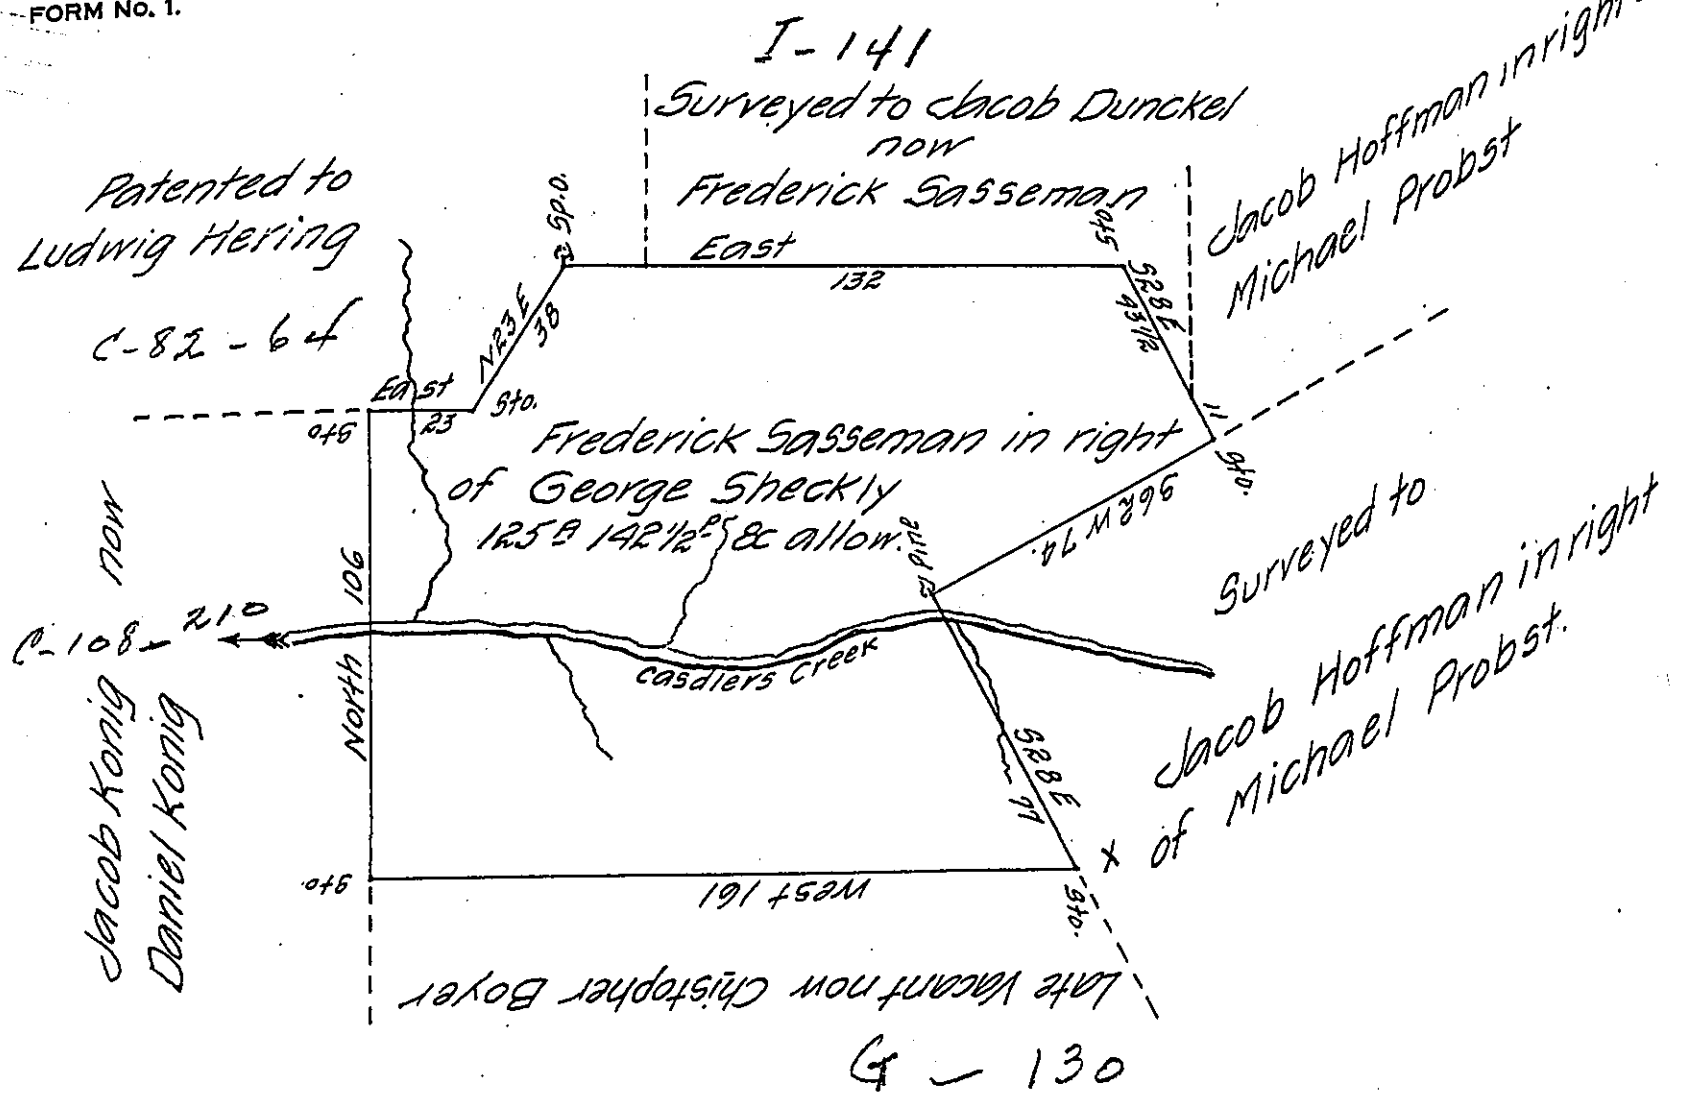 FORM No. 1.
I-141
Surveyed to Jacob Dunckel
now
Frederick Sasseman
Jacob Hoffman in right
Michael Probst
Patented to
Ludwig Hering
C-82-64
Sp.o.
East
132
Sto
S28E
43 1/2
11
Sto.
N23E
38
East
23
Sto.
Sto
Frederick Sasseman in right
of George Sheckly
125A 142 1/2P & allow.
S62W 74.
Pine
Surveyed to
Jacob Hoffman in right
of Michael Probst.
North 106
C-108-210
Jacob Konig now
Daniel Konig
Casdlers Creek
S28E
77
X
Sto.
West 161
Sto.
Late Vacant now Chistopher Boyer
G-130